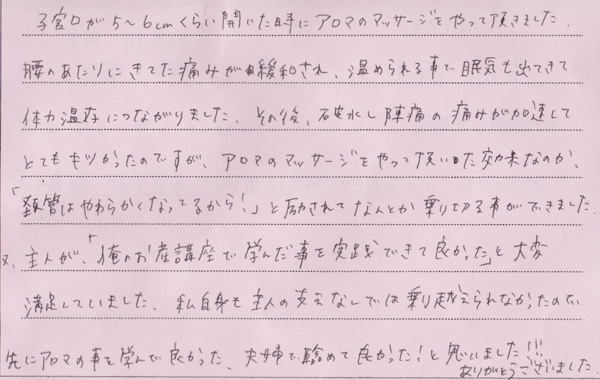 子宮口が5~6cmくらい開いた時にアロマのマッサージをやって頂きました.
腰のあたりにきてた痛みが緩和され、温められる事で眠気も出てきて
体力温存につながりました. その後、破水し陣痛の痛みが加速して
とてもキツかったのですが、アロマのマッサージをやって頂いた効果なのか、
「頚管はやわらかくなってるから!」と励まされてなんとか乗り切る事ができました.
又、主人が、「俺のお産講座で学んだ事を実践できて良かった」と大変
満足していました. 私自身も主人の支えなしでは乗り越えられなかったので
先にアロマの事を学んで良かった、夫婦で 良かった!と思いました!!!
ありがとうございました.